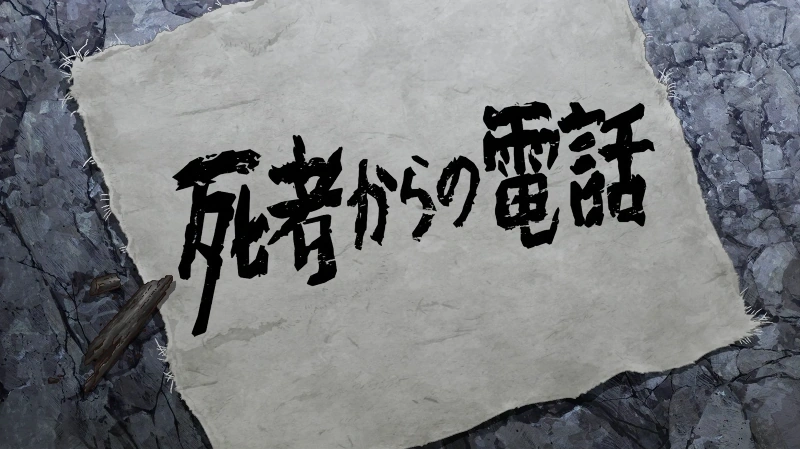 死者からの電話